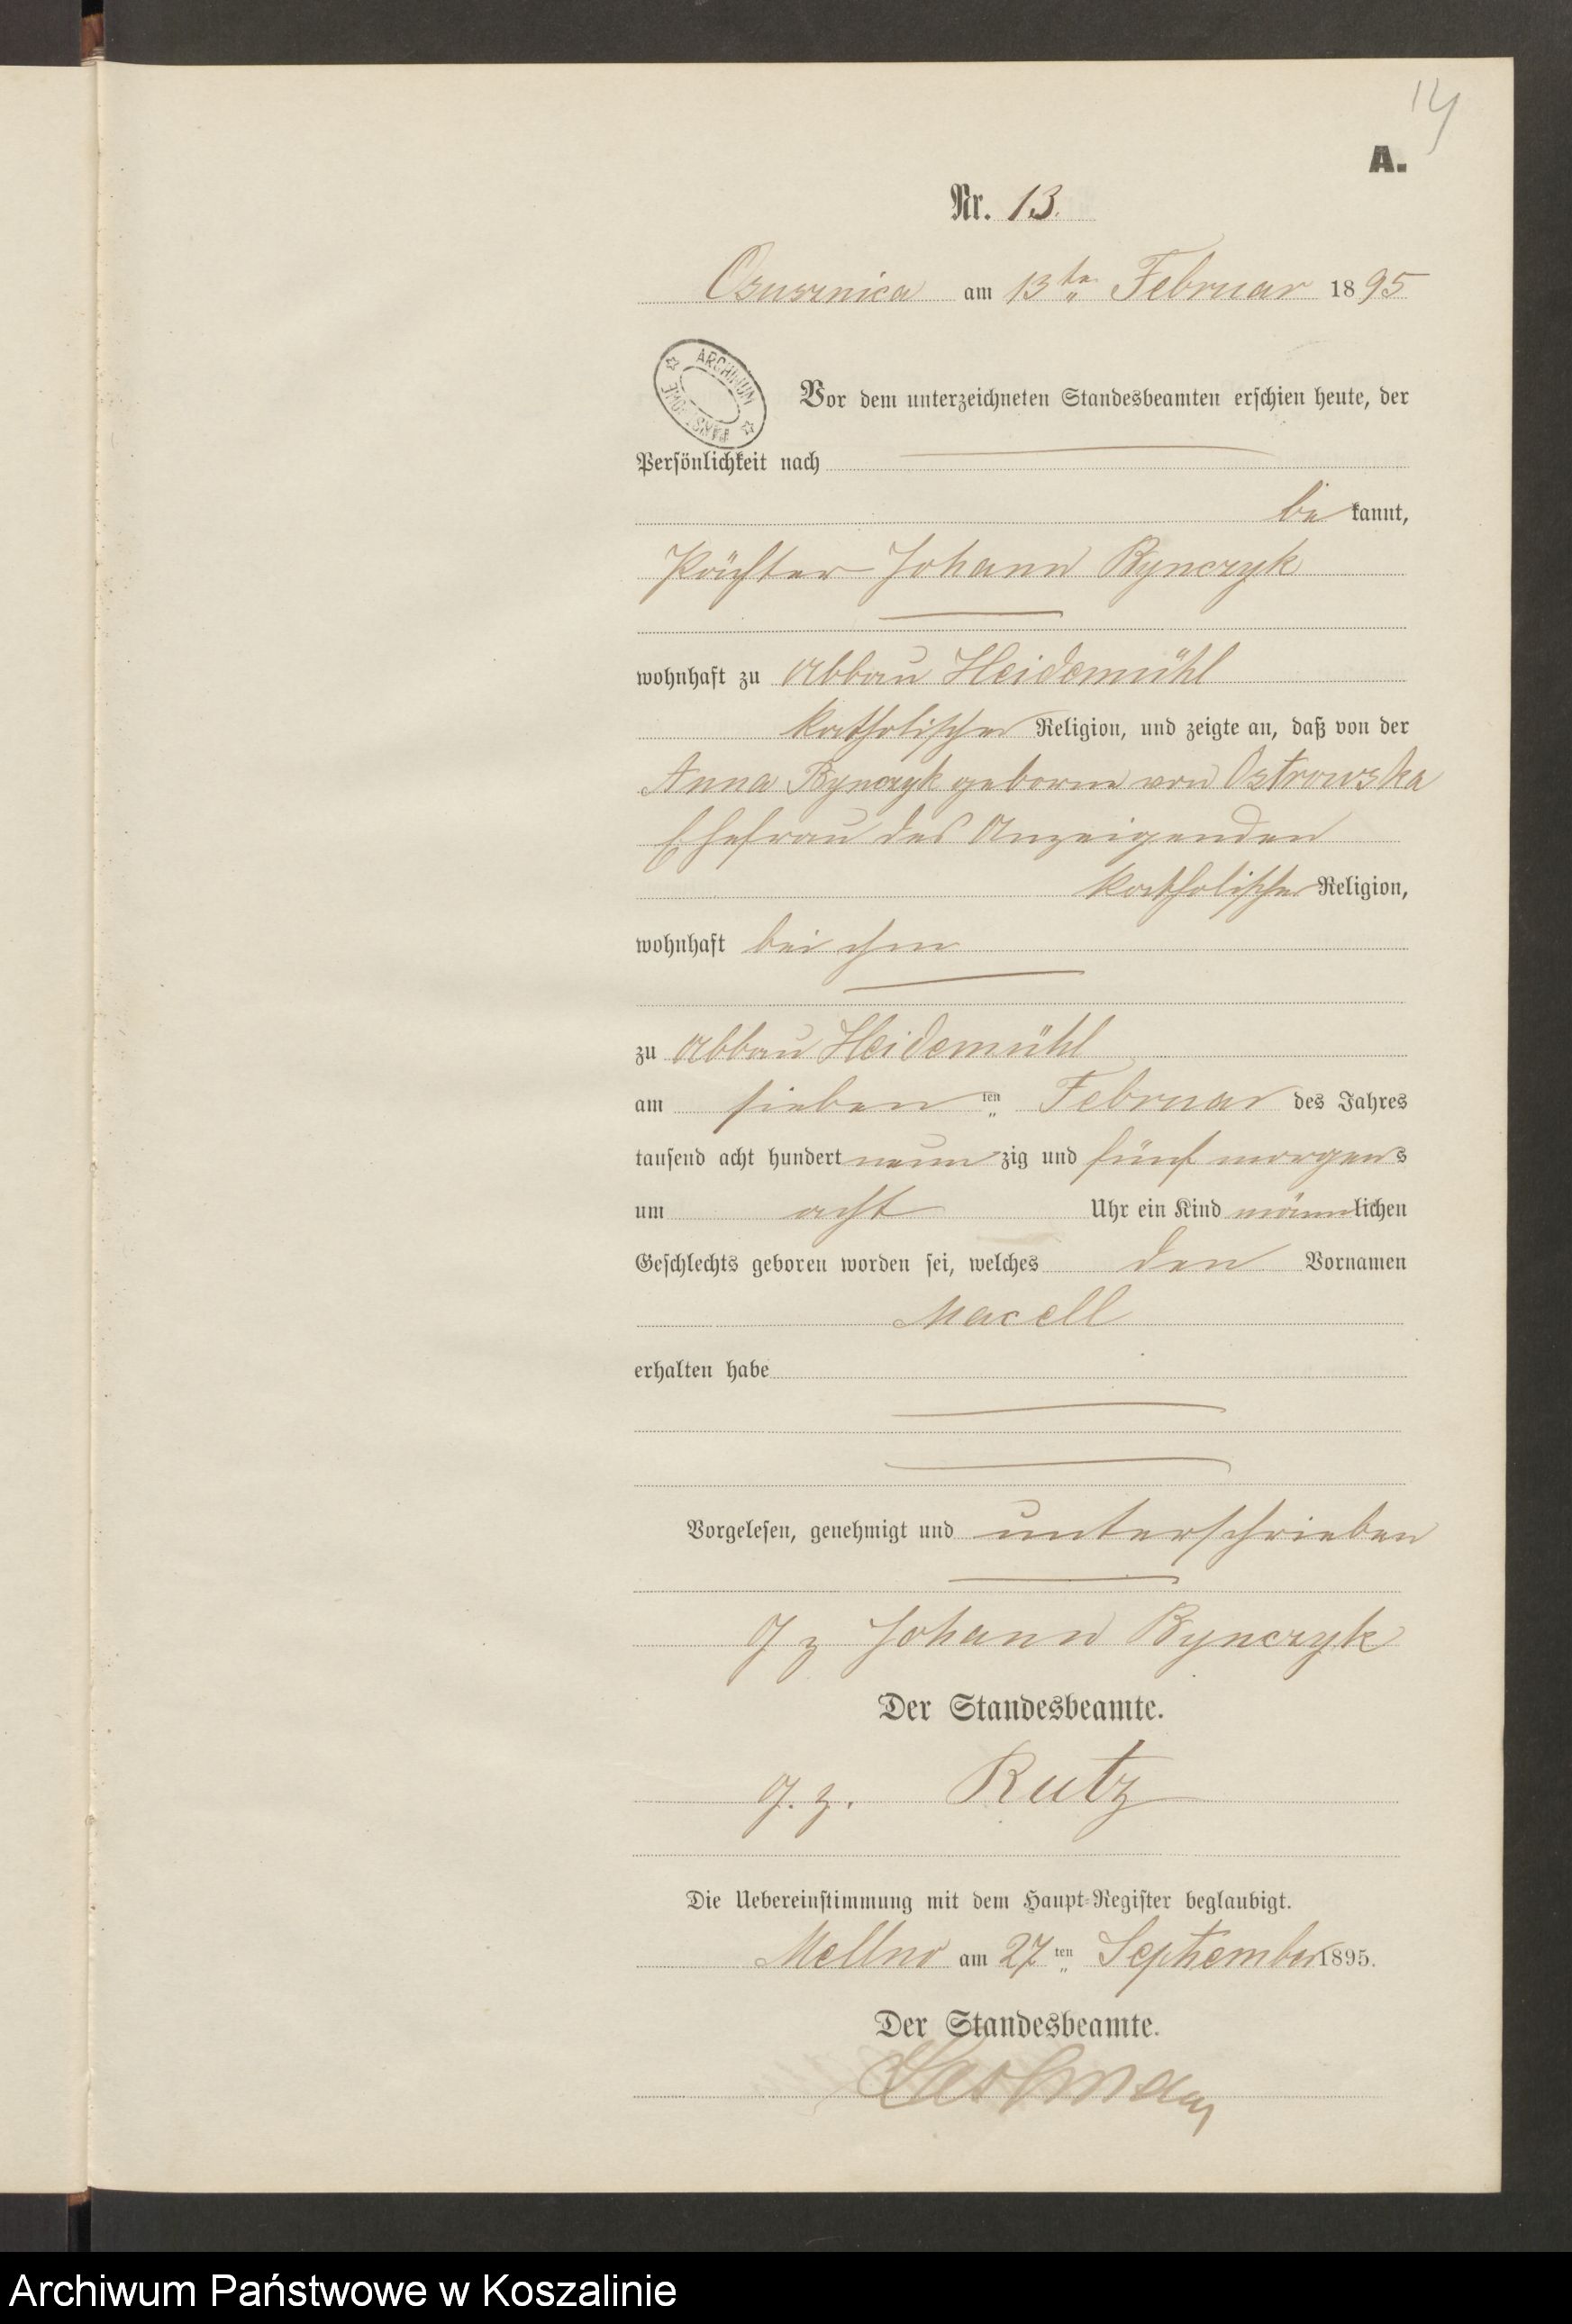 14
A.
Nr. 13.
Osusznica am 13ten Februar 1895
ARCHIWUM
Vor dem unterzeichneten Standesbeamten erschien heute, der
Persönlichkeit nach
be kannt,
Pächter Johann Bynczyk
wohnhaft zu Abbau Heidemühl
katholischer Religion, und zeigte an, daß von der
Anna Bynczyk geborene von Ostrowska
Ehefrau des Anzeigenden
katholischer Religion,
wohnhaft bei ihm
zu Abbau Heidemühl
am sieben ten Februar des Jahres
tausend acht hundert neun zig und fünf morgens
um acht Uhr ein Kind männlichen
Geschlechts geboren worden sei, welches den Vornamen
Macell
erhalten habe
Vorgelesen, genehmigt und unterschrieben
gz Johann Bynczyk
Der Standesbeamte.
g. z. Rutz
Die Uebereinstimmung mit dem Haupt-Register beglaubigt.
Mellno am 27 ten September 1895.
Der Standesbeamte.
Archiwum Państwowe w Koszalinie